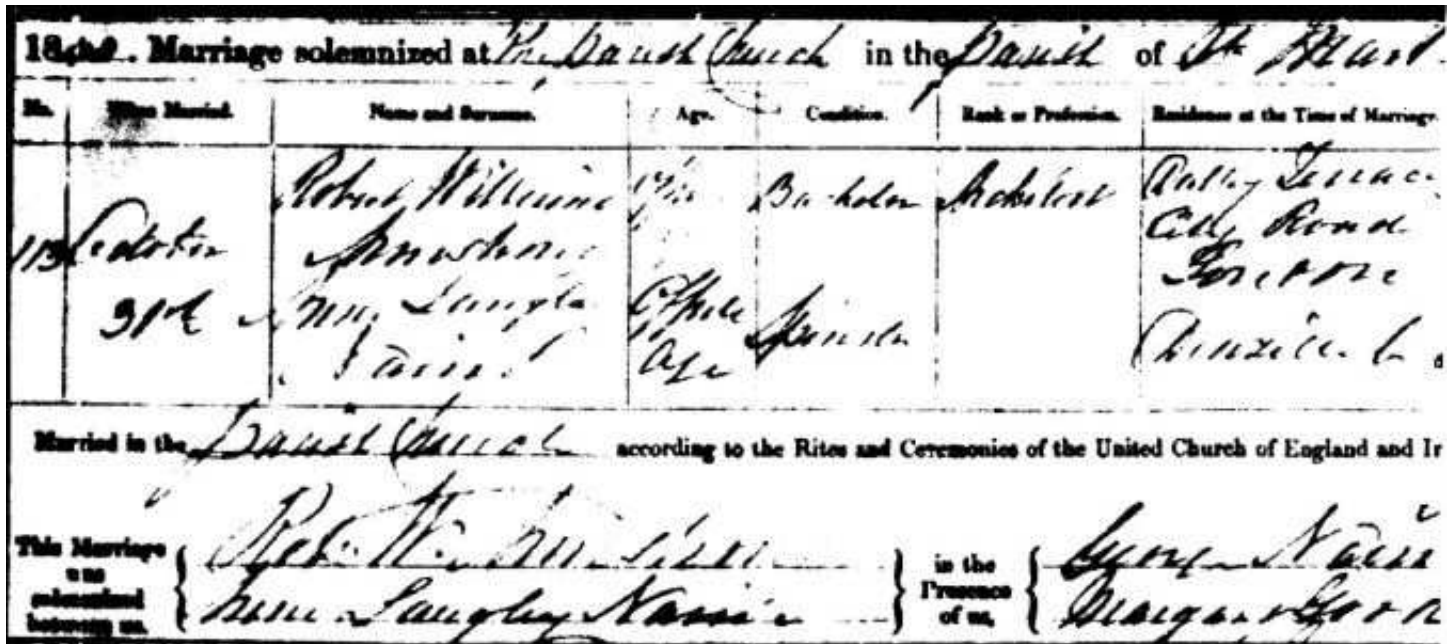 18 . Marriage solemnized at The Parish Church in the Parish of St Mart
No. When Married. Name and Surname. Age. Condition. Rank or Profession. Residence at the Time of Marriage.
113 October 31st
Robert William Armstrong
Bachelor
Architect
Terrace City Road London
Anne Langley Nairn
of full age
Spinster
Married in the Parish Church according to the Rites and Ceremonies of the United Church of England and Ir
This Marriage was solemnized between us,
Robt. W. Armstrong
Anne Langley Nairn
in the Presence of us,
George Nairn
Margaret